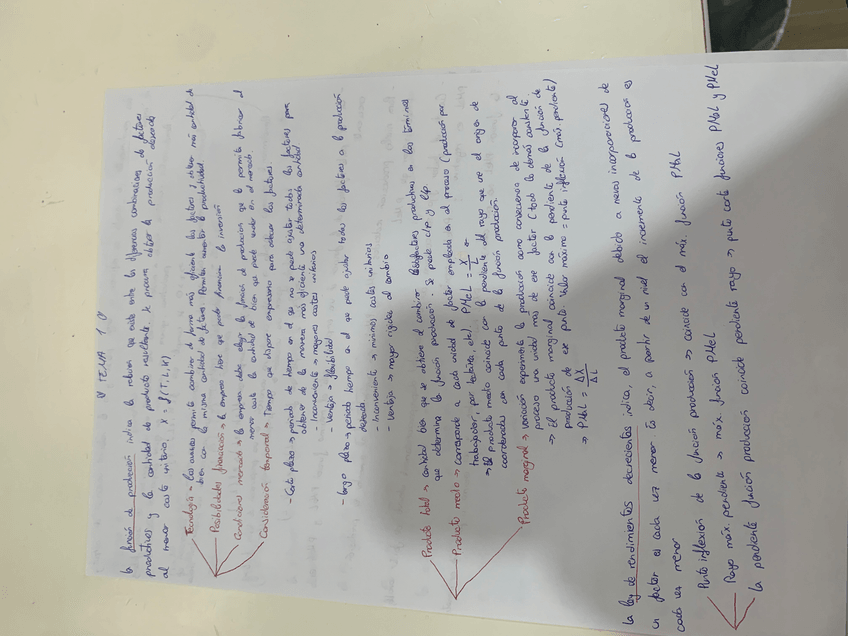 TEMA 1
La función de producción indica la relación que existe entre las diferentes combinaciones de factores
productivos y la cantidad de producto resultante. Se procura obtener la producción deseada
al menor coste unitario. X = f(T, L, K)
Tecnología → Los avances permite combinar de forma más eficiente los factores y obtener más cantidad de
bien con la misma cantidad de factores. Permiten aumentar la productividad.
Posibilidades financiación → la empresa tiene que poder financiar la inversión
Condiciones mercado → la empresa debe elegir la función de producción que le permita fabricar al
menor coste la cantidad de bien que puede vender en el mercado
Consideración temporal → Tiempo que dispone empresario para ubicar los factores.
- Corto plazo → periodo de tiempo en el que no se puede ajustar todos los factores para
obtener de la manera más eficiente una determinada cantidad
- Inconveniente → mayores costes unitarios
- Ventaja → flexibilidad
- Largo plazo → periodo tiempo en el que puede ajustar todos los factores a la producción
deseada
- Inconveniente → mínimos costes unitarios
- Ventaja → mayor rigidez al cambio
Producto total → cantidad bien que se obtiene al combinar factores productivos en los términos
que determina la función producción. Se puede c/p y l/p
Producto medio → corresponde a cada unidad de factor empleada en el proceso (producción por
trabajador, por hectárea, etc). PMeL = X/L
→ El producto medio coincide con la pendiente del rayo que une el origen de
coordenadas con cada punto de la función producción.
Producto marginal → variación experimenta la producción como consecuencia de incorporar al
proceso una unidad más de ese factor (todo lo demás constante)
→ El producto marginal coincide con la pendiente de la función de
producción de ese punto. Valor máximo = punto inflexión (máx. pendiente)
→ PMgL = ΔX/ΔL
La ley de rendimientos decrecientes indica, el producto marginal debido a nuevas incorporaciones de
un factor es cada vez menor. Es decir, a partir de un nivel el incremento de la producción es
cada vez menor
Punto inflexión de la función producción → coincide con el máx. función PMgL
Rayo máx. pendiente → máx. función PMeL
La pendiente función producción coincide pendiente rayo → punto corte funciones PMgL y PMeL